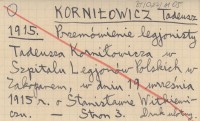 KORNIŁOWICZ Tadeusz
1915. Przemówienie legjonisty
Tadeusza Korniłowicza w
Szpitalu Legjonów Polskich w
Zakopanem, w dniu 19 września
1915 r. o Stanisławie Witkiewi-
czu. — Stron 3. Drukowany.